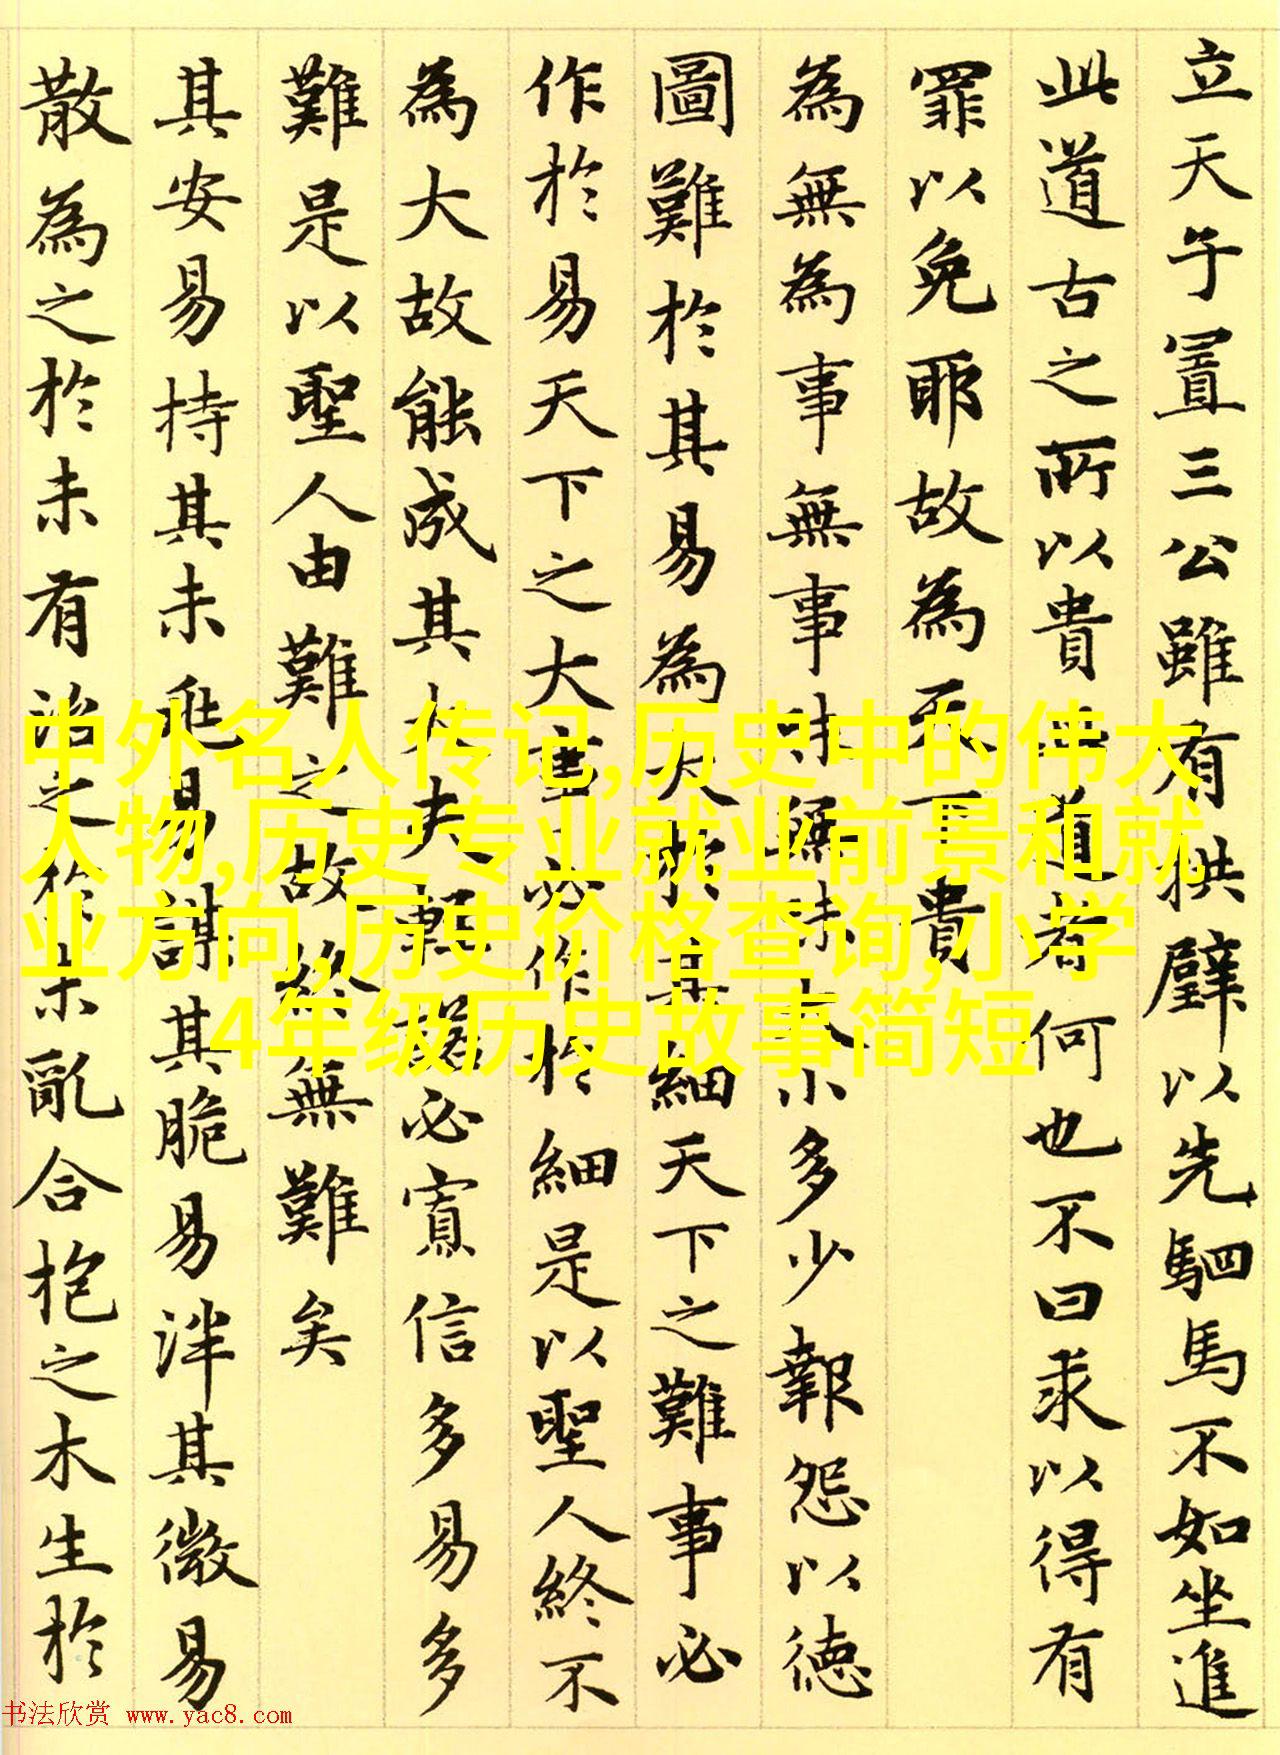 立天子置三公雖有拱璧以先駟馬不如坐進
此道古之所以貴此道者何也不曰求以得有
罪以免耶故為天下貴
為無為事無事味無味大小多少報怨以德
圖難於其易為大於其細天下之難事必
作於易天下之大事必作於細是以聖人終不
為大故能成其大夫輕諾必寡信多易多
難是以聖人由難之故終無難矣
其安易持其未兆易謀其脆易泮其微易
散為之於未有治之於未亂合抱之木生於
中外名人传记,历史中的伟大
人物,历史专业就业前景和就
业方向,历史价格查询,小学
4年级历史故事简短
书法欣赏 www.yac8.com